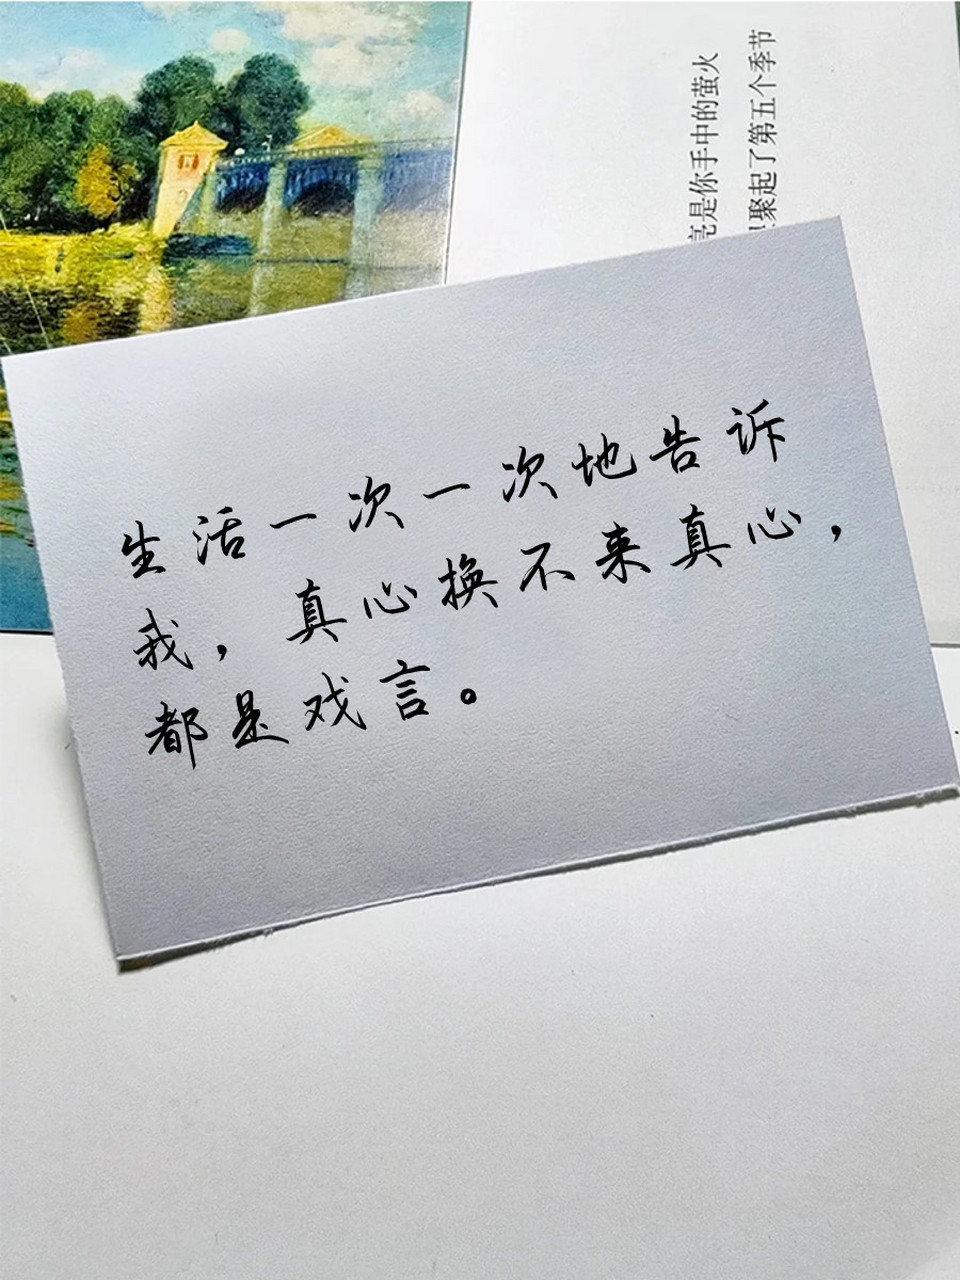 生活一次一次地告诉
我，真心换不来真心，
都是戏言。
亮是你手中的萤火
聚起了第五个季节